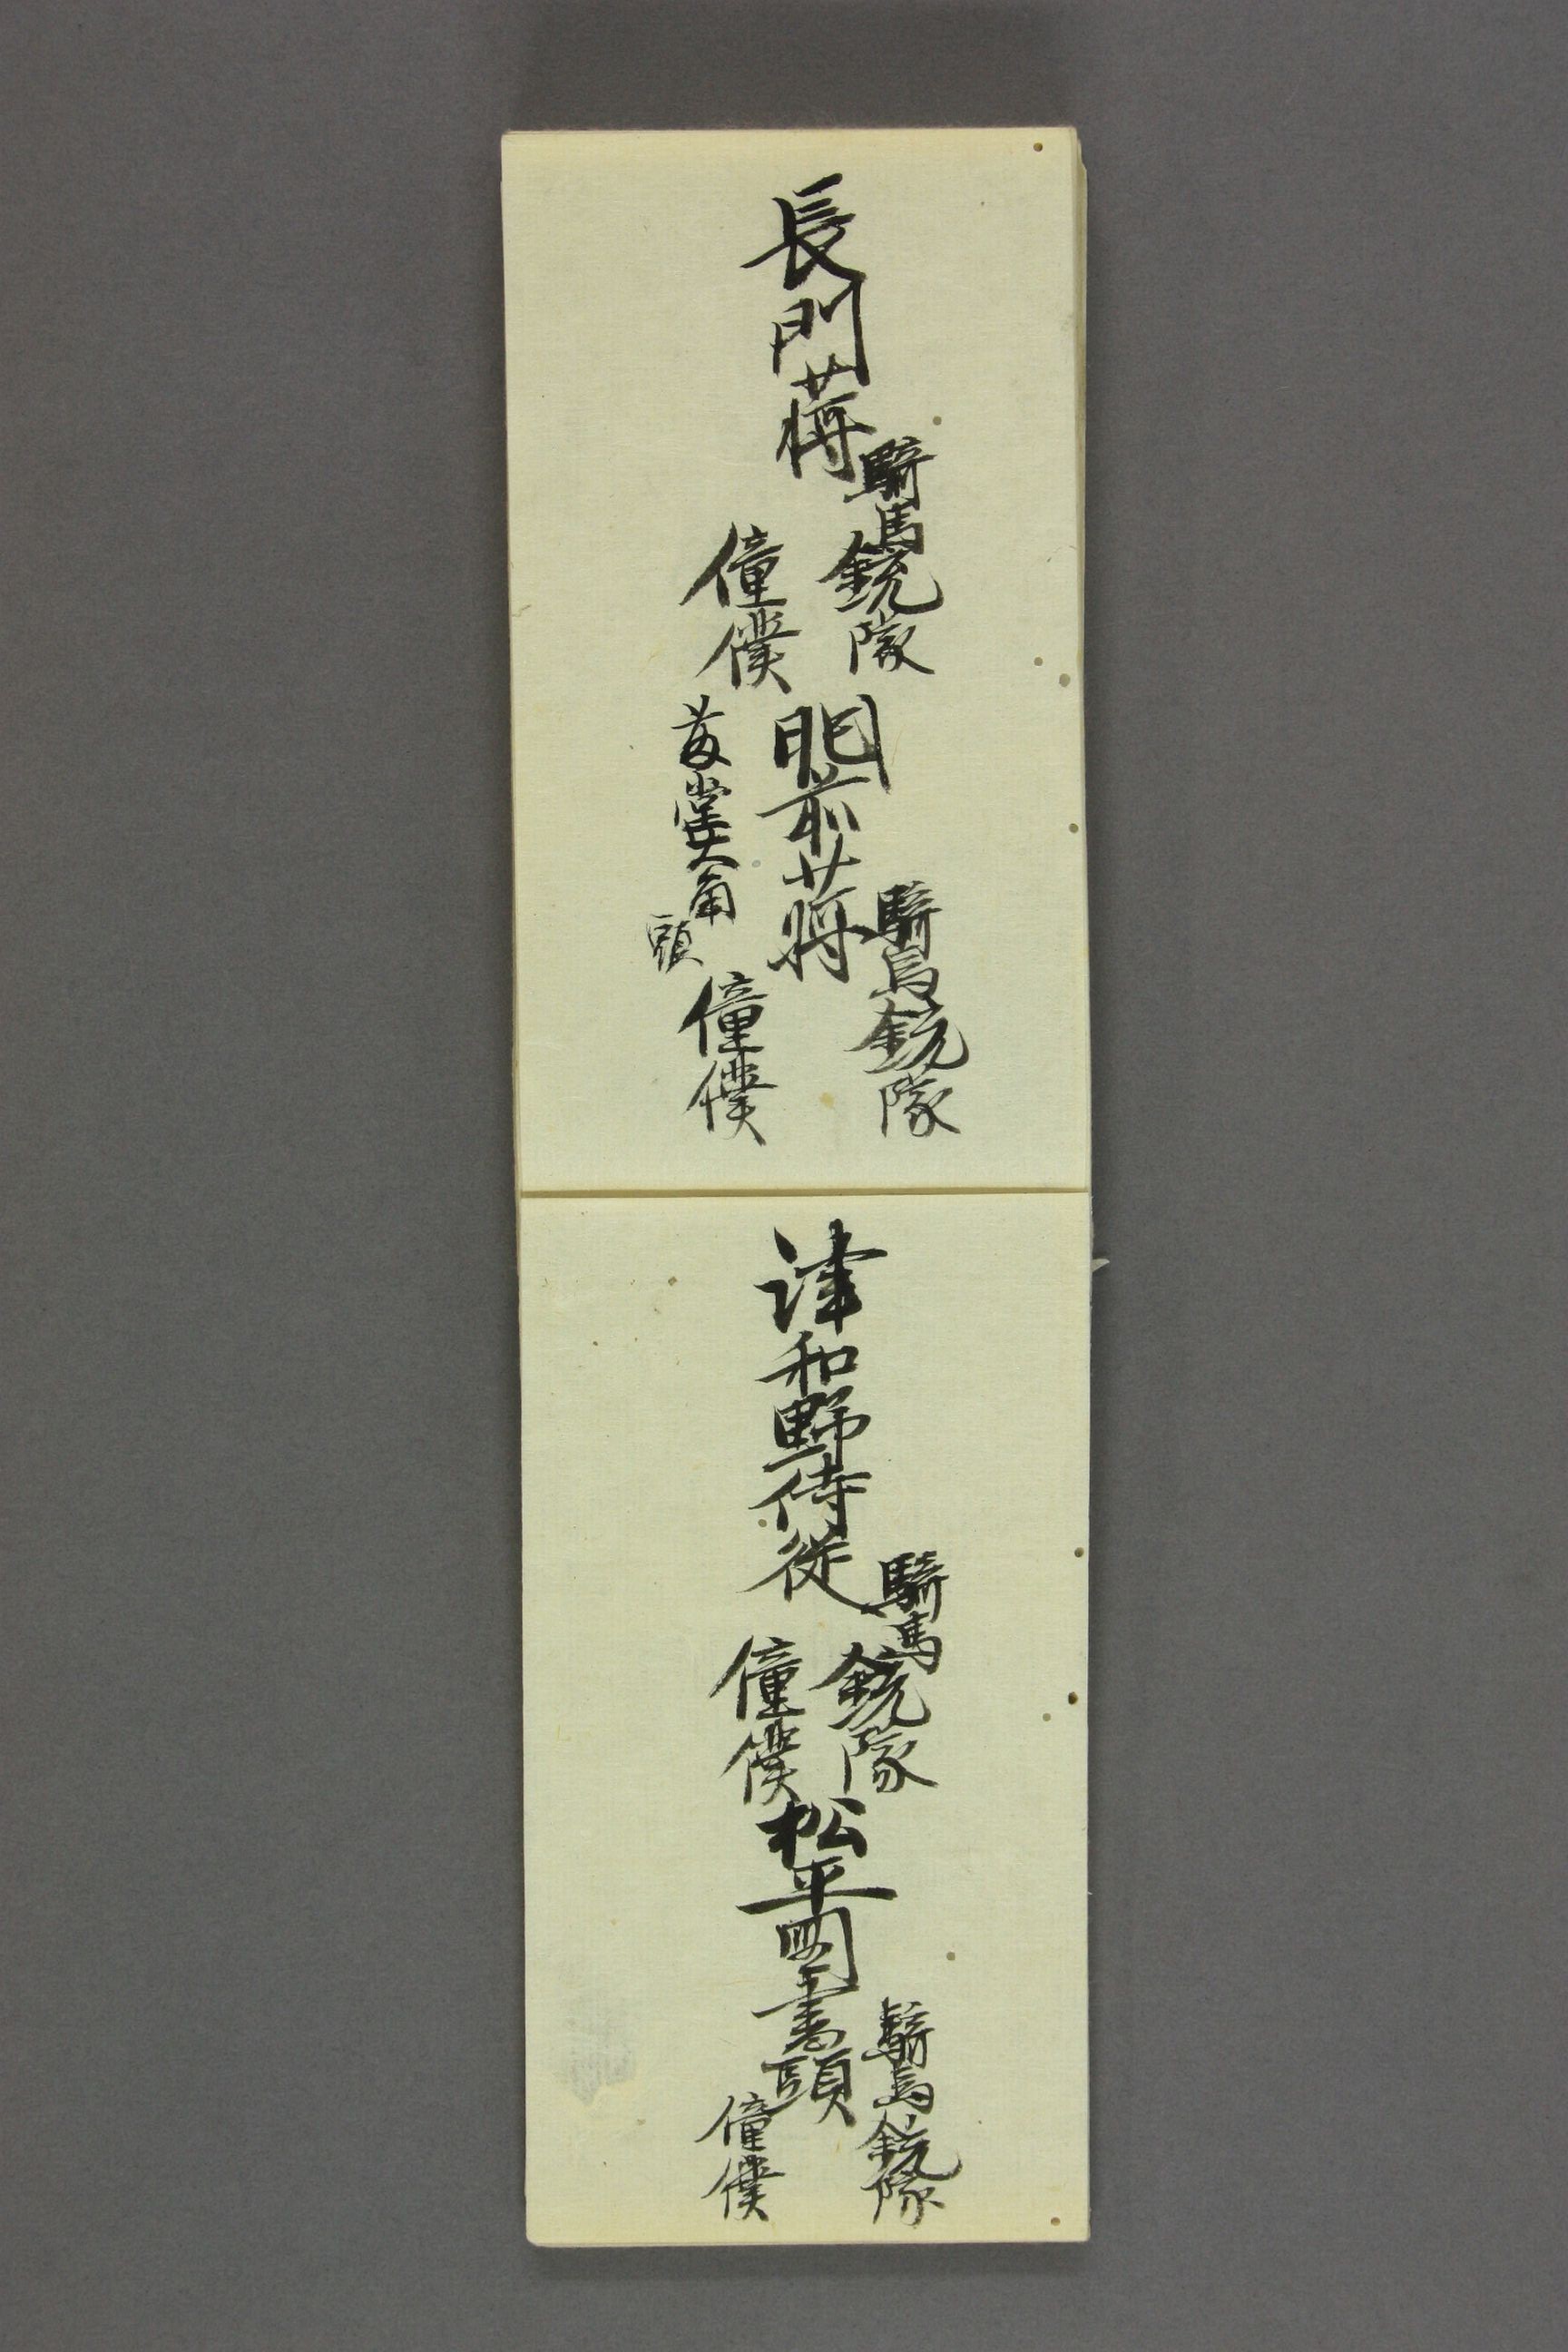 長門蒋
騎馬銃隊
僮僕
肥前蒋
騎馬銃隊
藤堂大
頭
僮僕
津和野侍従
騎馬銃隊
僮僕
松平図書頭
騎馬銃隊
僮僕